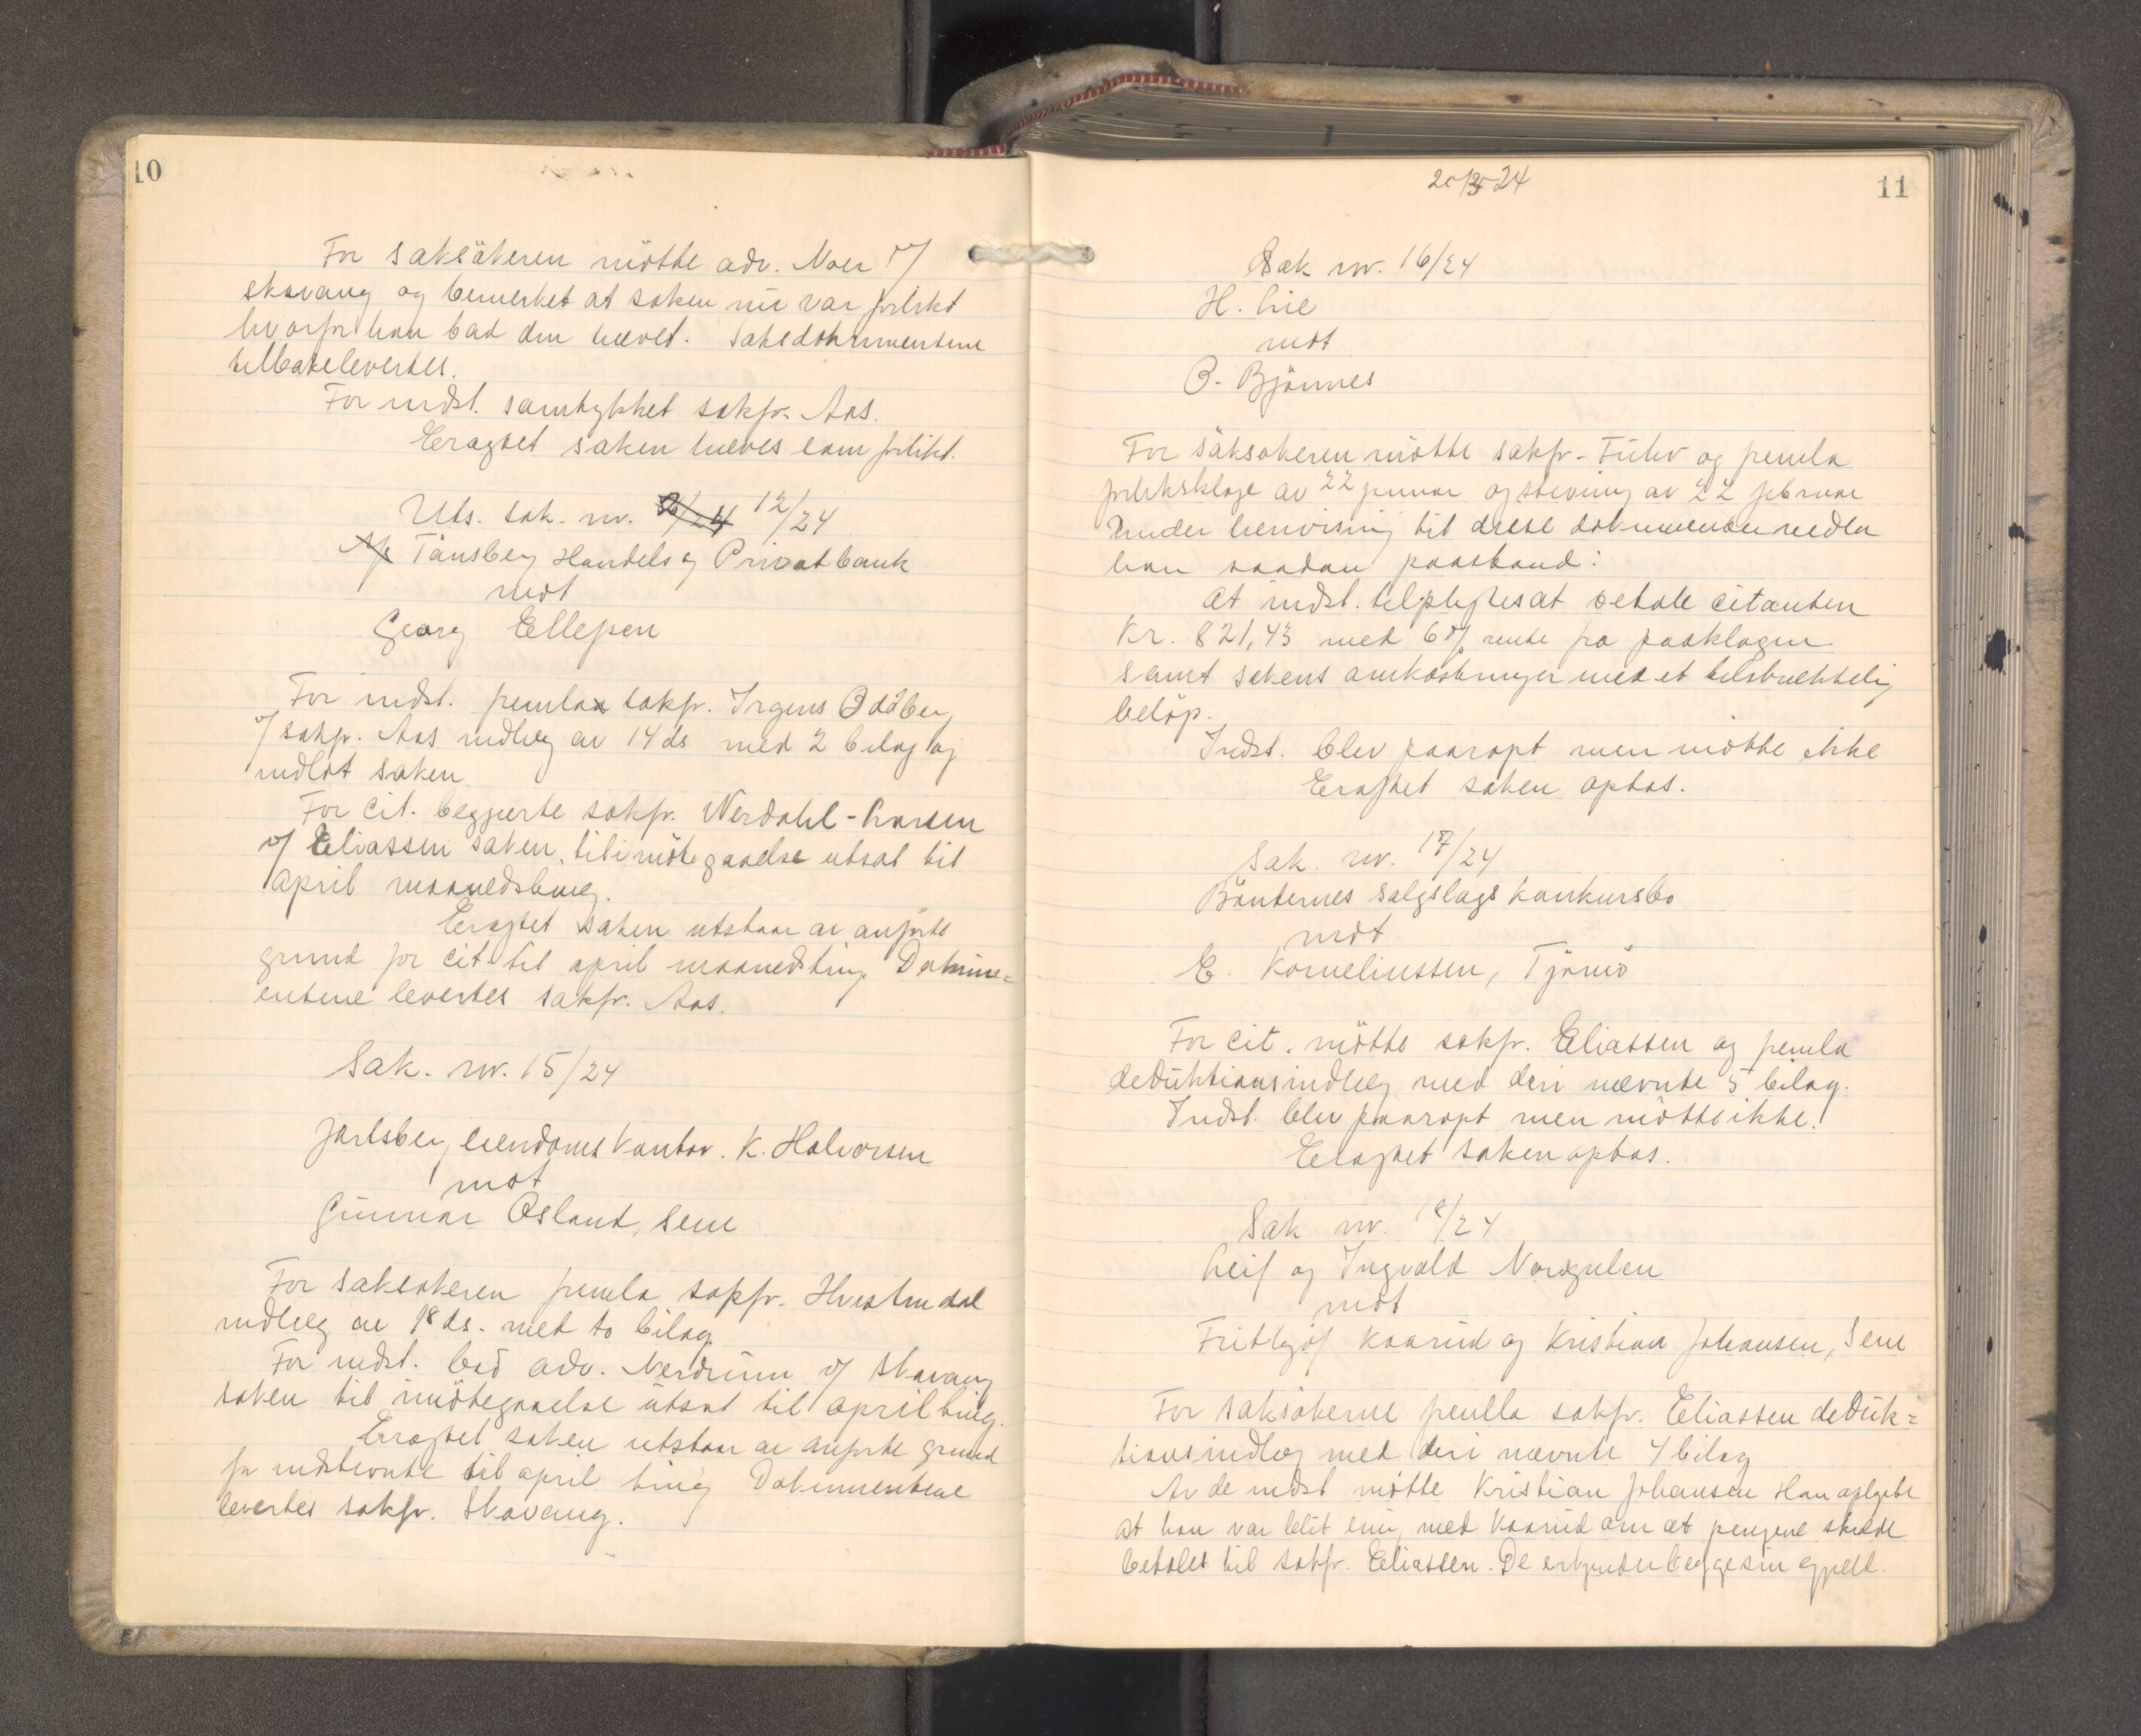 10
For saksökeren mötte adv. Noer v/
Skavang og bemerket at saken nu var forlikt
hvorfor han bad den hævet. Saksdokumentene
tilbakelevertes.
For indst. samtykket sakfr. Aas.
Eragtet saken hæves som forlikt.
Uts. sak. nr. 12/24
Tönsberg Handels og Privatbank
mot
Georg Ellefsen
For indst. fremla sakfr. Irgens Ödberg
v/ sakfr. Aas indlæg av 14 ds med 2 bilag og
indlot saken.
For cit. begjærte sakfr. Werdahl-Larsen
v/ Eliassen saken til imötegaaelse utsat til
april maanedsting.
Eragtet saken utstaar av anförte
grund for cit. til april maanedsting. Dokume=
entene levertes sakfr. Aas.
Sak. nr. 15/24
Jarlsberg eiendomskontor. K. Halvorsen
mot
Gunnar Osland, Sem
For saksökeren fremla sakfr. Hvistendal
indlæg av 18 ds. med to bilag.
For indst. bad adv. Nerdrum v/ Skavang
saken til imötegaaelse utsat til april ting.
Eragtet saken utstaar av anförte grund
for indstevnte til april ting Dokumentene
levertes sakfr. Skavang.
20/3 24
11
Sak nr. 16/24
H. Lie
mot
B. Bjönnes
For saksökeren mötte sakfr. Fuhr og fremla
forliksklage av 22 januar og stevning av 22 februar
Under henvisning til disse dokumenter nedla
han saadan paastand:
At indst. tilpligtes at betale citanten
Kr. 821,43 med 6 % rente fra paaklagen
samt sakens omkostninger med et tilstrækkelig
belöp.
Indst. blev paaropt men mötte ikke
Eragtet saken optas.
Sak. nr. 17/24
Böndernes salgslags konkursbo
mot
E. Korneliussen, Tjömö
For cit. mötte sakfr. Eliassen og fremla
deduktionsindlæg med deri nævnte 5 bilag.
Indst. blev paaropt men mötte ikke.
Eragtet saken optas.
Sak nr. 18/24
Leif og Ingvald Norgulen
mot
Frithjof Kaarud og Kristian Johansen, Sem
For saksökerne fremla sakfr. Eliassen deduk=
tionsindlæg med deri nævnte 4 bilag
Av de indst mötte Kristian Johansen Han oplyste
at han var blit enig med Kaarud om at pengene skulde
betales til sakfr. Eliassen. De erkjender begge sin gjæld.